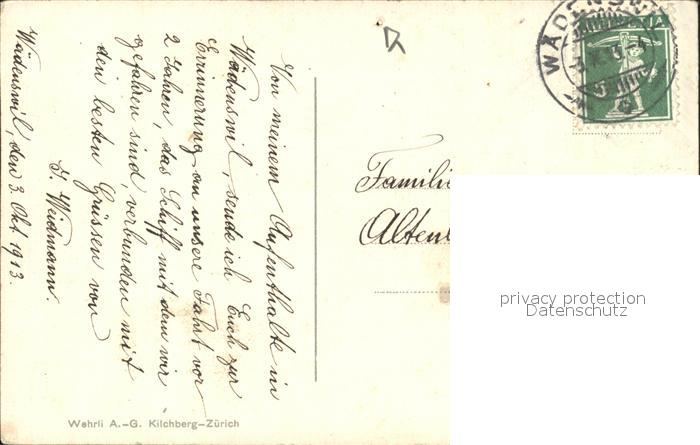 Von meinem Aufenthalte in
Wädenswil, sende ich Euch zur
Erinnerung an unsere Fahrt vor
2 Jahren, das Schiff mit dem wir
gefahren sind, verbunden mit
den besten Grüssen von
J. Weidmann.
Wädenswil, den 3. Okt 1913.
Wehrli A.-G. Kilchberg-Zürich
WÄDENSW
Famili
Alten
privacy protection
Datenschutz